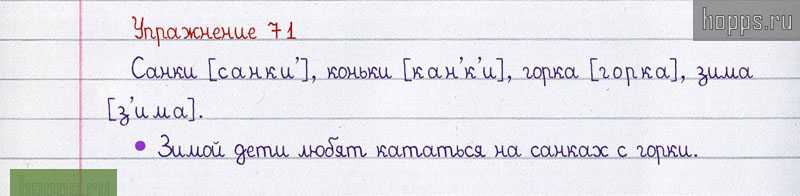 hopps.ru
Упражнение 71
Санки [санки’], коньки [кан’к’и], горка [горка], зима
[з’има].
• Зимой дети любят кататься на санках с горки.
hopps.ru